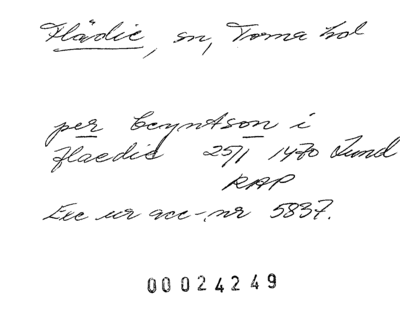 Flädie, sn, Torna hd
per Beyntson i
flaedie 25/1 1470 Lund
RAP
Exc ur acc-nr 5837.
00024249